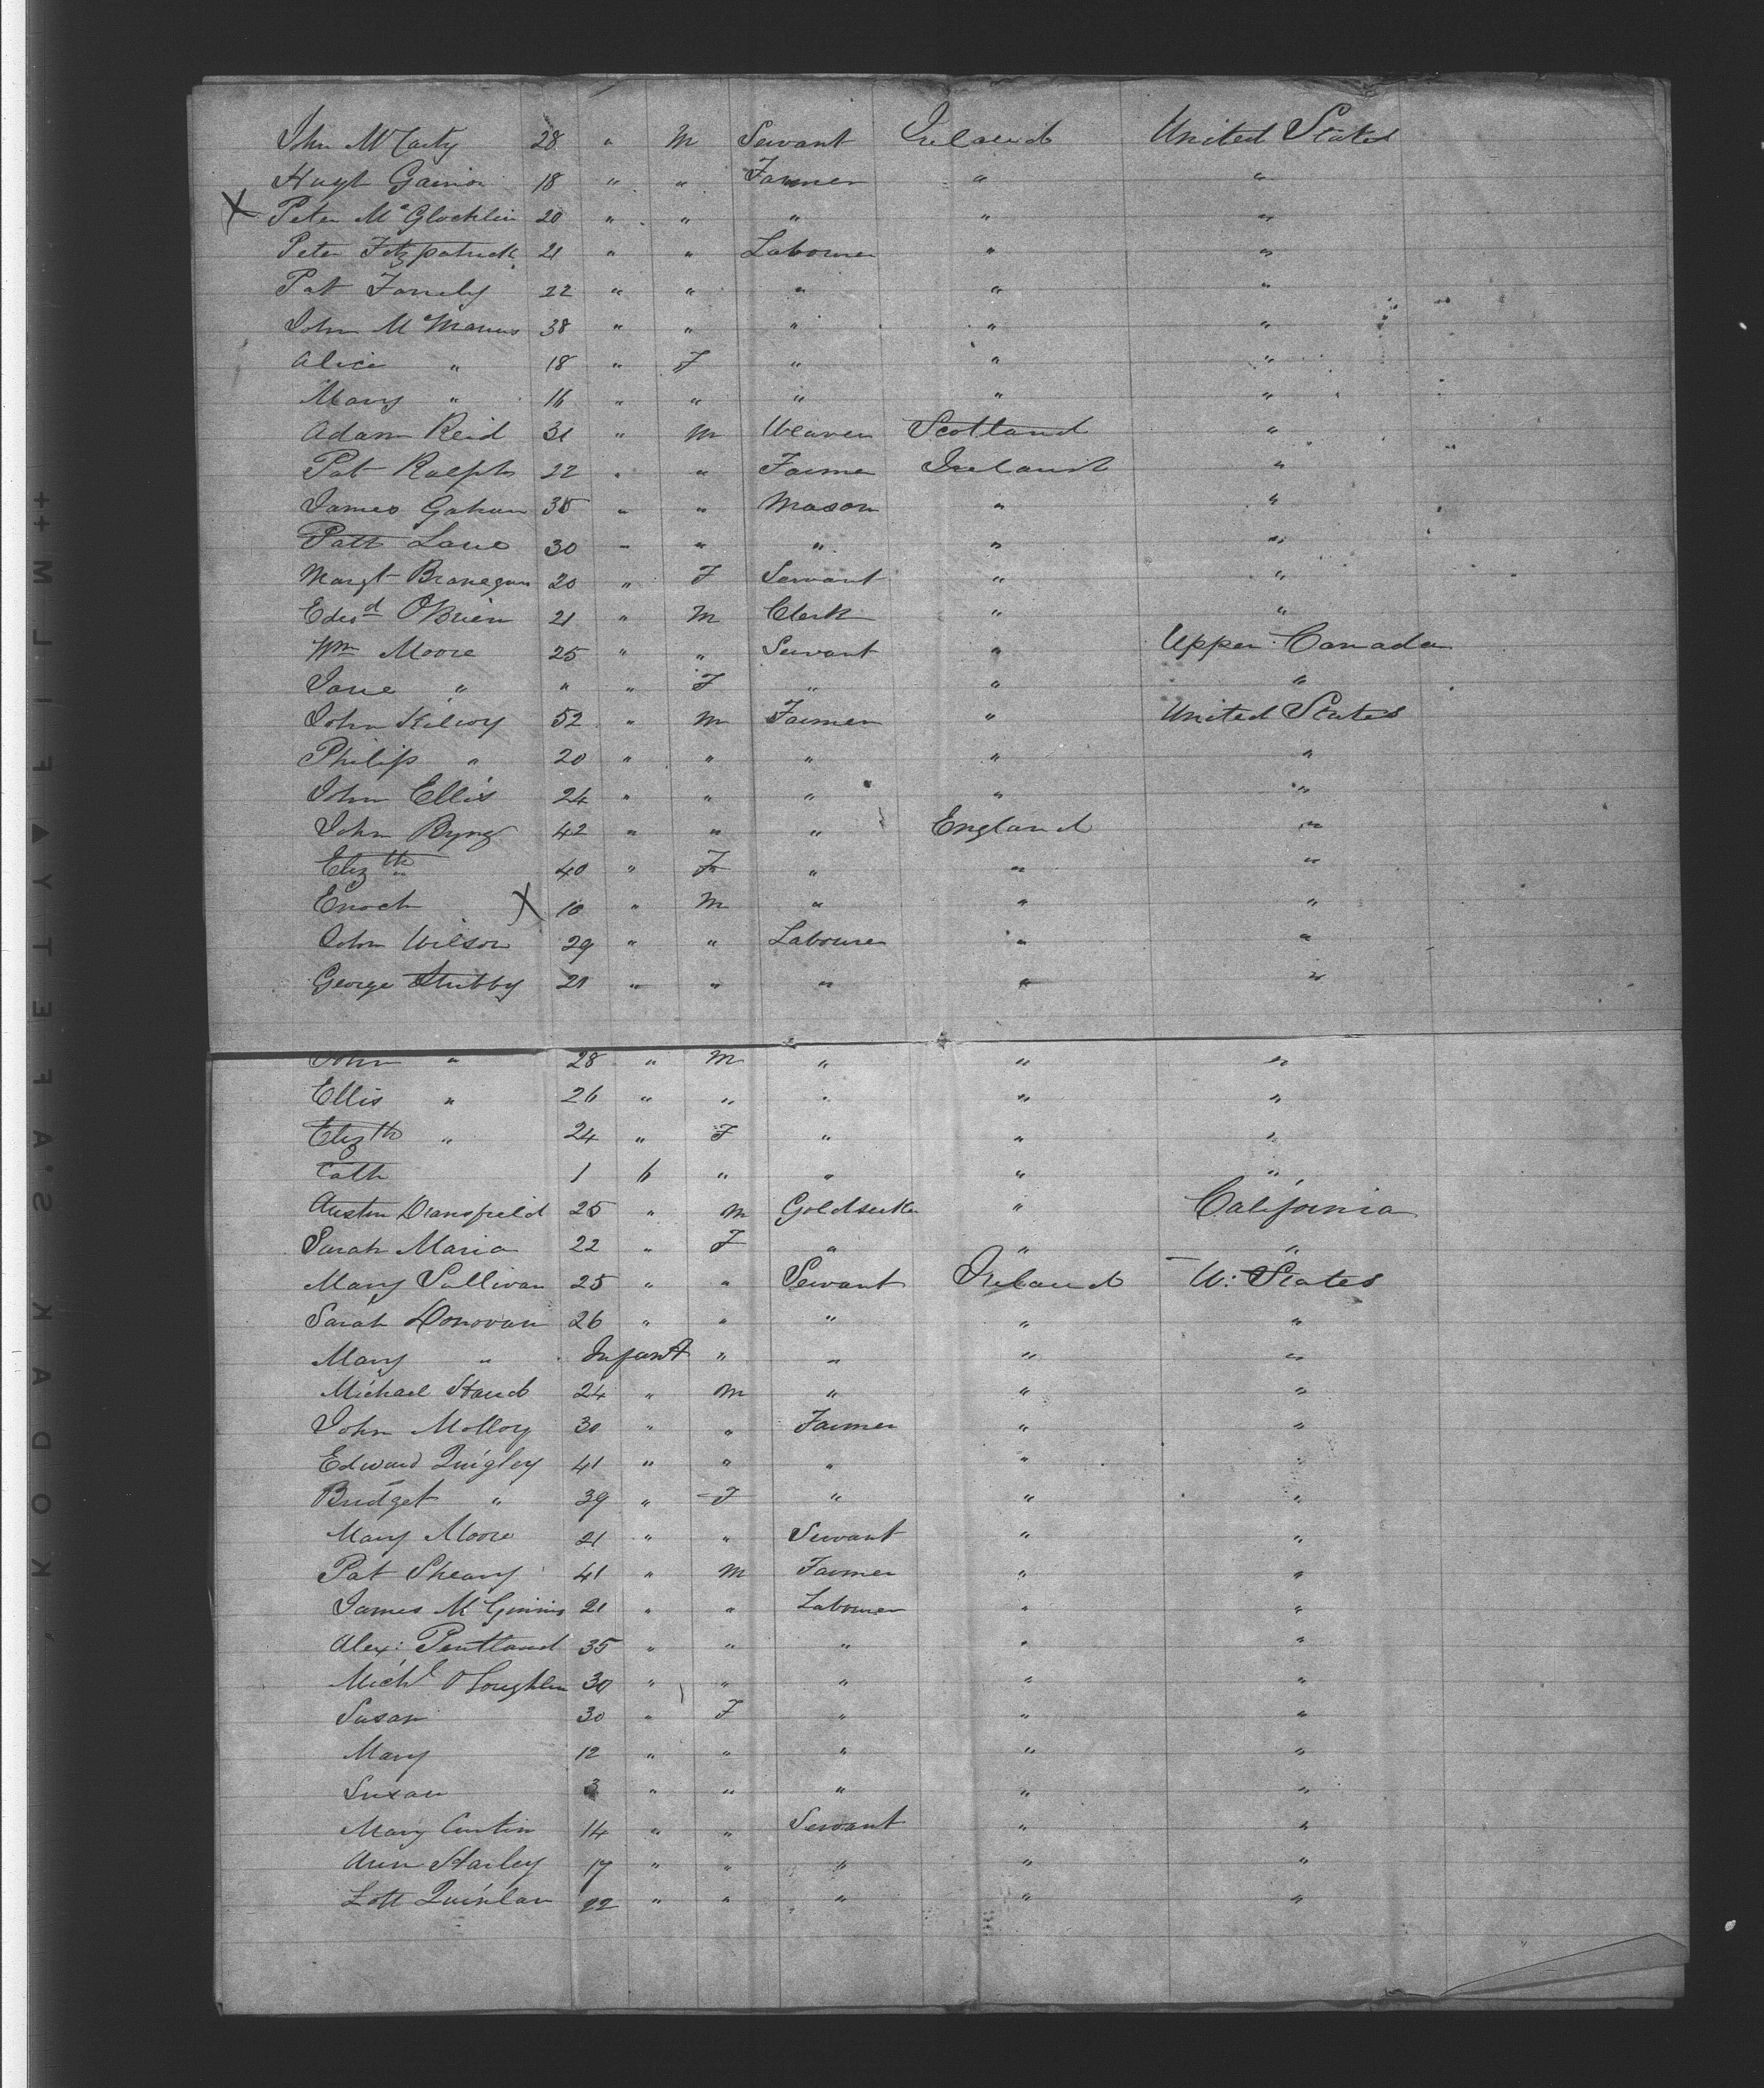 John McCarty 28 " M Servant Ireland United States
Hugh Gainor 18 " " Farmer " "
X Peter McGlocklin 20 " " " " "
Peter Fitzpatrick 21 " " Labourer " "
Pat Farrely 22 " " " " "
John McManus 38 " " " " "
Alice " 18 " F " " "
Mary " 16 " " " " "
Adam Reid 31 " M Weaver Scotland "
Pat Ralph 22 " " Farmer Ireland "
James Gahan 35 " " Mason " "
Patt Lane 30 " " " " "
Margt Branegan 20 " F Servant " "
Edwd O'Brien 21 " M Clerk " "
Wm Moore 25 " " Servant " Upper Canada
Jane " " " F " " "
John Kilroy 52 " M Farmer " United States
Philip " 20 " " " " "
John Ellis 24 " " " " "
John Byng 42 " " " England "
Elizth " 40 " F " " "
Enoch X 10 " M " " "
John Wilson 29 " " Labourer " "
George Stubby 21 " " " " "
John " 28 " M " " "
Ellis " 26 " " " " "
Elizth " 24 " F " " "
Cath 1 6 " " " "
Austin Dransfield 25 " M Goldseeker " California
Sarah Maria 22 " F " " "
Mary Sullivan 25 " " Servant Ireland U: States
Sarah Donovan 26 " " " " "
Mary " Infant " " " "
Michael Stand 24 " M " " "
John Molloy 30 " " Farmer " "
Edward Quigley 41 " " " " "
Bridget " 39 " F " " "
Mary Moore 21 " " Servant " "
Pat Sheary 41 " M Farmer " "
James McGinnis 21 " " Labourer " "
Alex: Pentland 35 " " " " "
Michl O'Loughlin 30 " " " " "
Susan 30 " F " " "
Mary 12 " " " " "
Susan 3 " " " " "
Mary Curtin 14 " " Servant " "
Ann Starley 17 " " " " "
Quinlan 22 " " " " "
KODAK SAFETY FILM ++